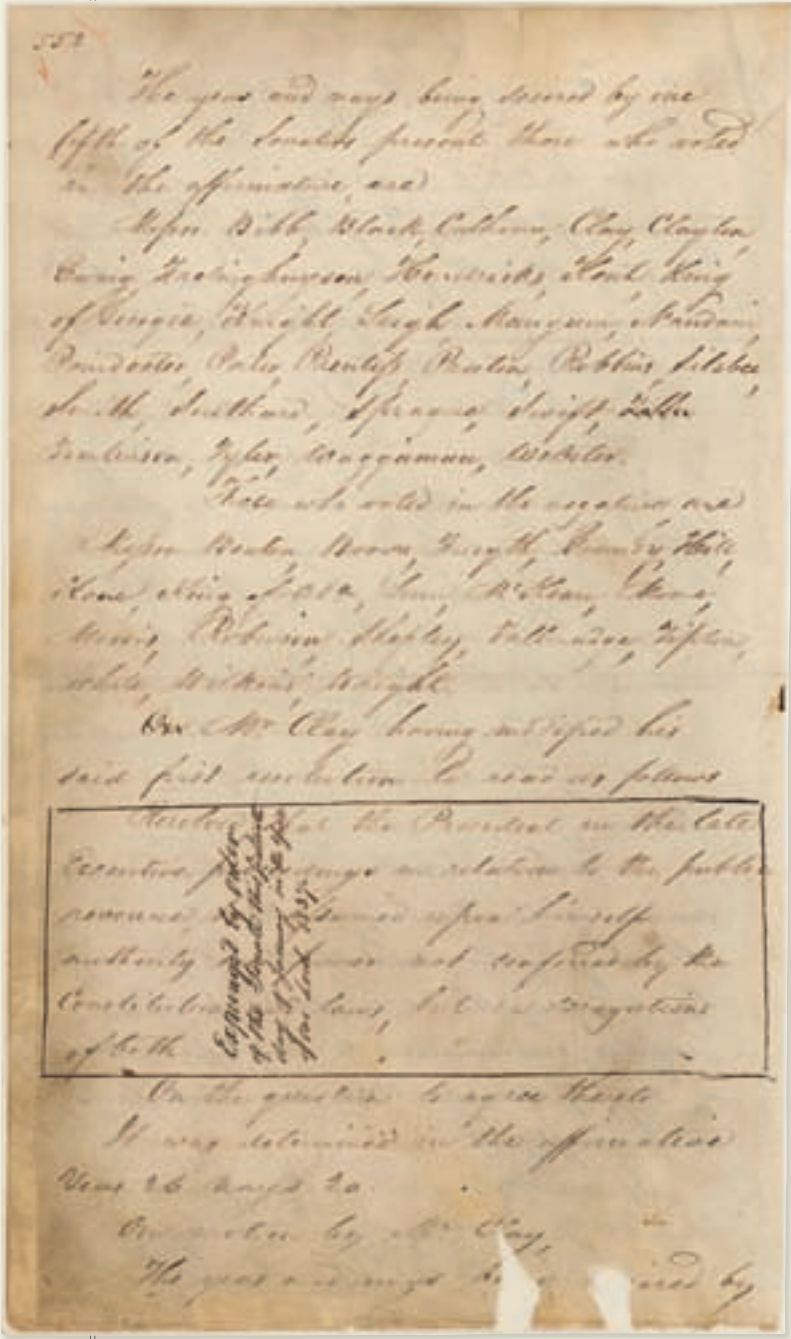 552
The yeas and nays being desired by one
fifth of the Senators present Those who voted
in the affirmative, are
Messrs Bibb, Black, Calhoun, Clay, Clayton,
Ewing, Frelinghuysen, Hendricks, Kent, King
of Georgia, Knight, Leigh, Mangum, Naudain,
Poindexter, Porter, Prentiss, Preston, Robbins, Silsbee,
Smith, Southard, Sprague, Swift,
Tomlinson, Tyler, Waggaman, Webster.
Those who voted in the negative are
Messrs Benton, Brown, Forsyth, Grundy, Hill,
Kane, King of Ala, Linn, McKean, Moore,
Morris, Robinson, Shepley, Tallmadge, Tipton,
White, Wilkins, Wright.
Mr Clay having modified his
said first resolution to read as follows
Resolved that the President in the late
Executive proceedings in relation to the public
revenue, assumed upon himself
authority and power not conferred by the
Constitution laws, but in derogation
of both
Expunged by order
of the Senate this
day of January in the year
of our Lord 1837
On the question to agree thereto
It was determined in the affirmative
Yeas 26 nays 20.
On motion by Mr Clay,
The yeas and nays being desired by